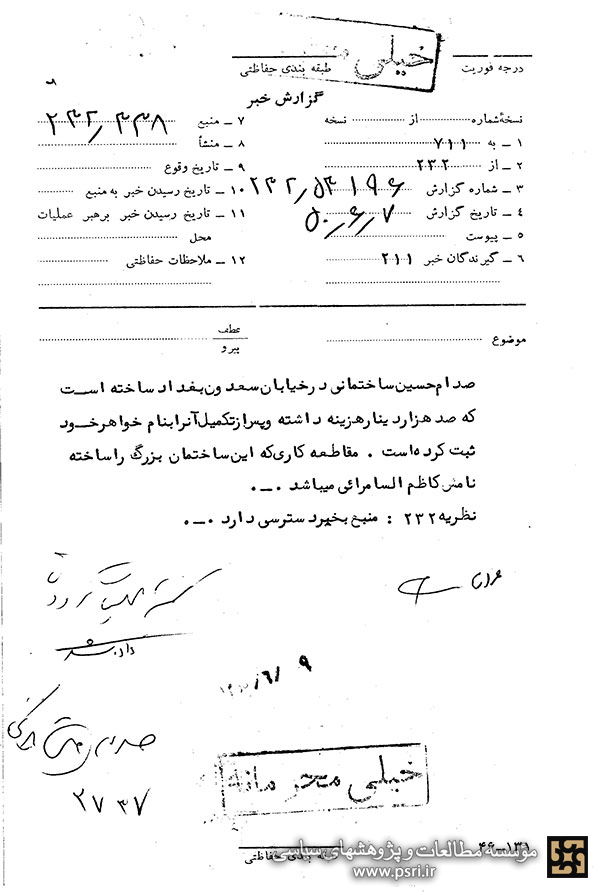 خیلی
درجه فوریت
طبقه بندی حفاظتی
گزارش خبر
نسخهٔ شماره از نسخه
۱ ـ به ۷۱۱
۲ ـ از ۲۳۲
۳ ـ شماره گزارش
۴ ـ تاریخ گزارش ۵۰٫۶٫۷
۵ ـ پیوست
۶ ـ گیرندگان خبر ۲۱۱
۷ ـ منبع
۸ ـ منشأ
۹ ـ تاریخ وقوع
۱۰ ـ تاریخ رسیدن خبر به منبع
۱۱ ـ تاریخ رسیدن خبر برهبر عملیات
محل
۱۲ ـ ملاحظات حفاظتی
موضوع
عطف
پیرو
صدام حسین ساختمانی در خیابان سعدون بغداد ساخته است
که صد هزار دینار هزینه داشته و پس از تکمیل آنرا بنام خواهر خود
ثبت کرده است . مقاطعه کاری که این ساختمان بزرگ را ساخته
نامش کاظم السامرائی میباشد ۰ـ۰
نظریه ۲۳۲ : منبع بخبر دسترسی دارد ۰ـ۰
۶/۹
خیلی محرمانه
۲۷۳۷
بندی حفاظتی
۴۶ـ۱۳۱
مؤسسه مطالعات و پژوهشهای سیاسی
www.psri.ir